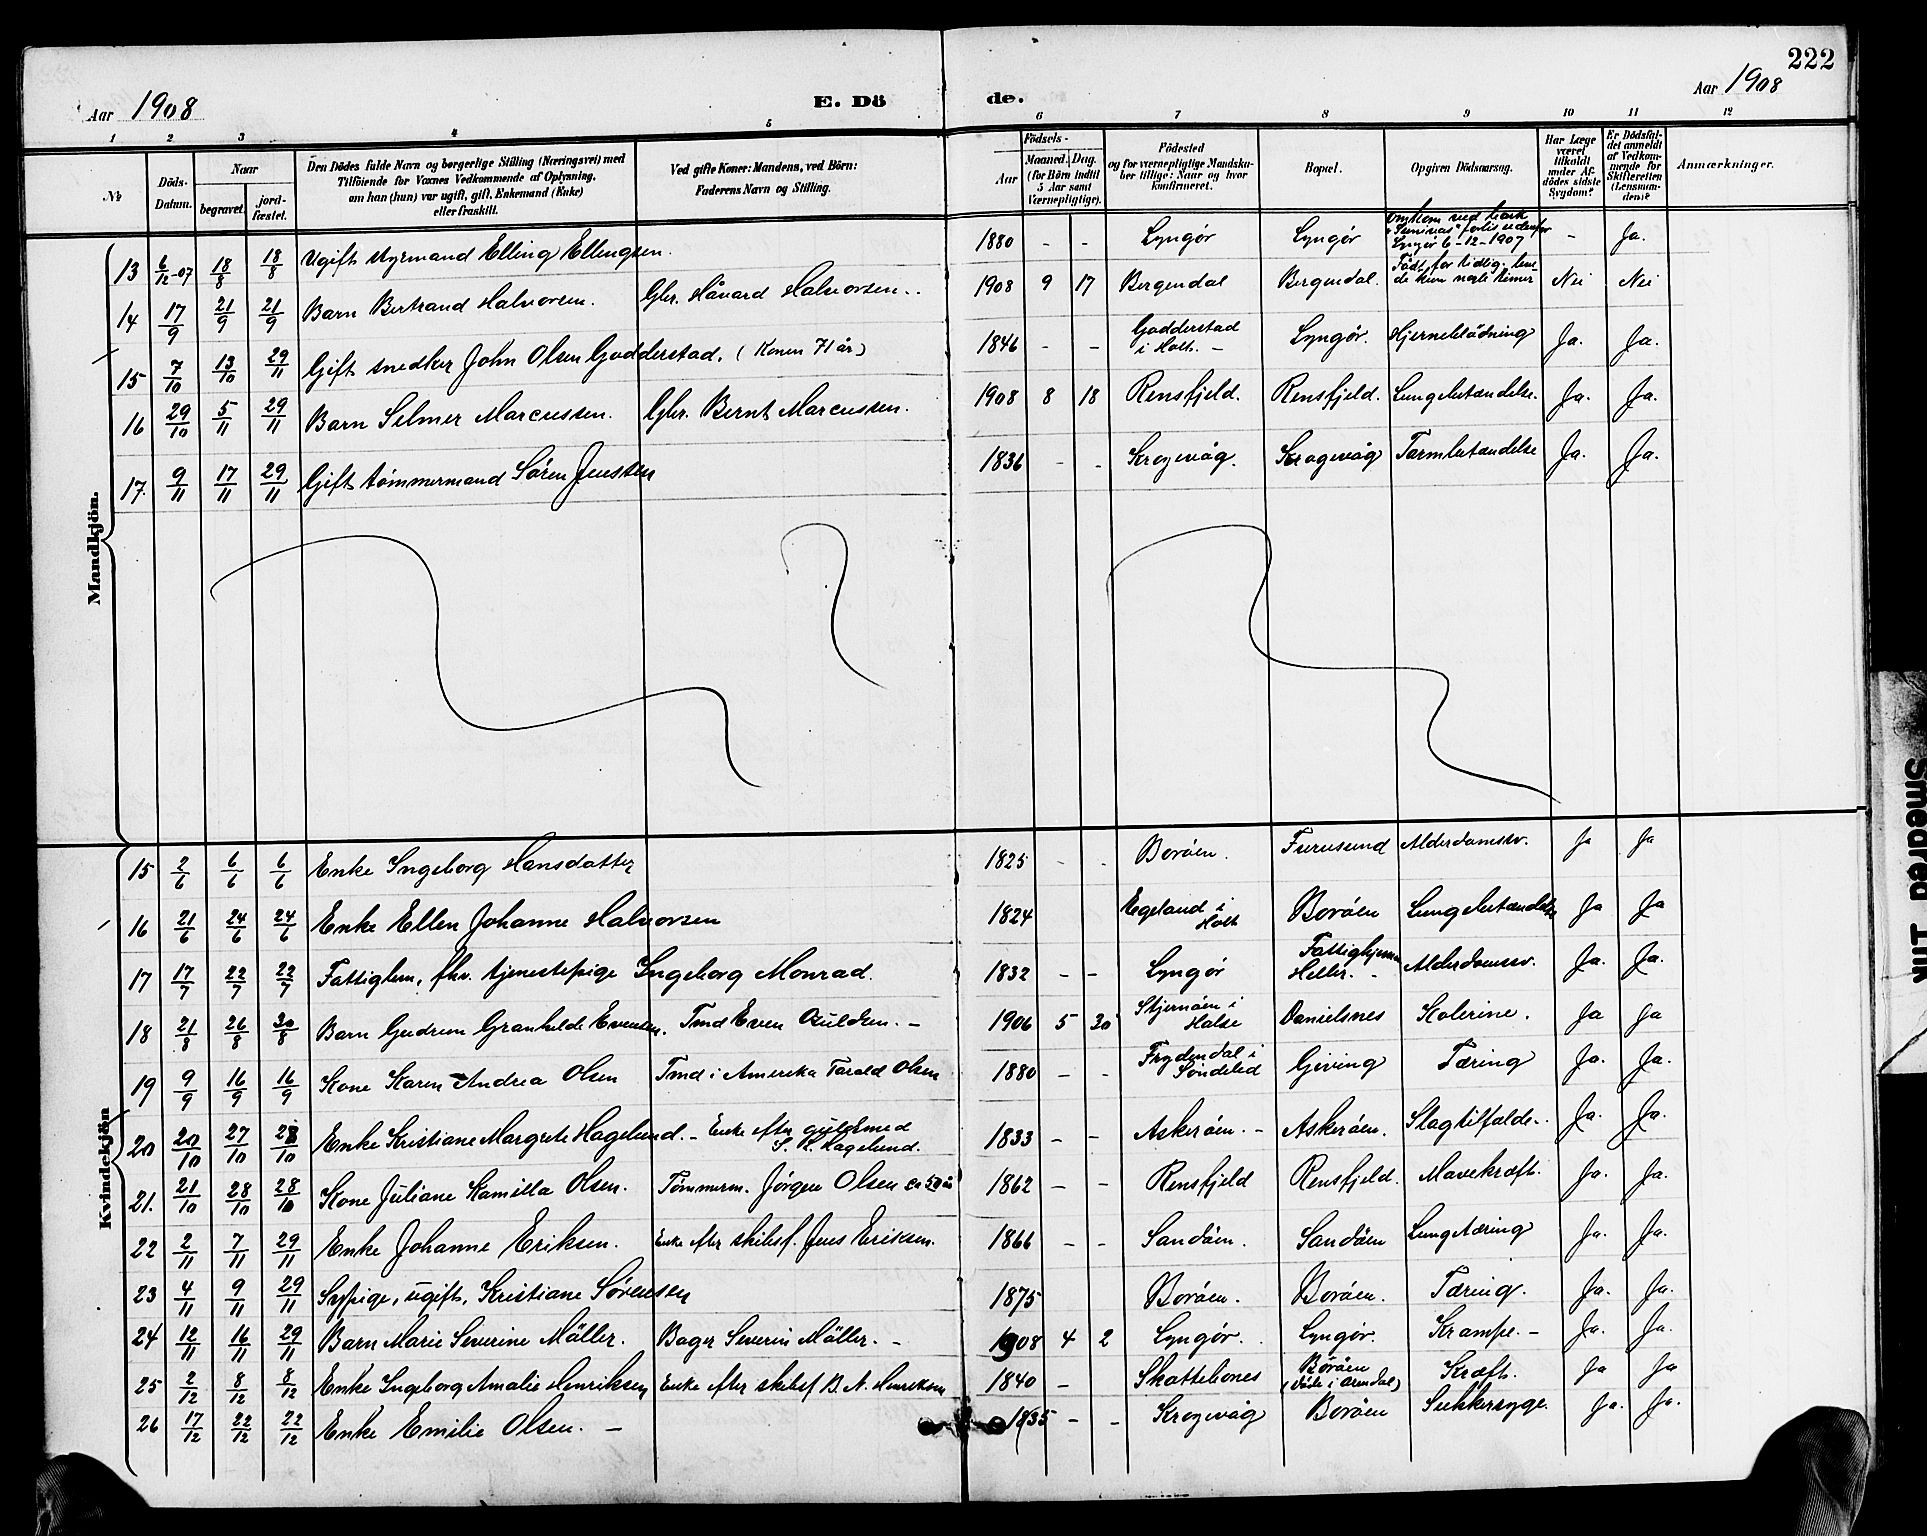 222
Aar 1908
E. Dö de.
Aar 1908
1 2 3 4 5 6 7 8 9 10 11 12
No
Döds-Datum.
Naar
begravet.
jord-fæstet.
Den Dödes fulde Navn og borgerlige Stilling (Næringsvei) med
Tilföiende for Voxnes Vedkommende af Oplysning,
om han (hun) var ugift, gift, Enkemand (Enke)
eller fraskilt.
Ved gifte Koner: Mandens, ved Börn:
Faderens Navn og Stilling.
Födsels-
Aar
Maaned. Dag.
(for Börn indtil
5 Aar samt
Værnepligtige).
Födested
og for værnepligtige Mandska-
ber tillige: Naar og hvor
konfirmeret.
Bopæl.
Opgiven Dödsaarsag.
Har Læge
været
tilkaldt
under Af-
dödes sidste
Sygdom?
Er Dödsfal-
det anmeldt
af Vedkom-
mende for
Skifteretten
(Lensman-
den)?
Anmærkninger.
Mandkjön.
13 6/12-07 18/8 18/8 Ugift styrmand Elling Ellingsen. 1880 - - Lyngör Lyngör omkom ved bark
"Seminas" forlis udenfor
Lyngör 6-12-1907 - Ja.
14 17/9 21/9 21/9 Barn Bertrand Halvorsen. Gbr. Håvard Halvorsen.. 1908 9 17 Bergendal Bergendal. Födt for tidlig. leve-
de kun nogle timer Nei Nei
15 7/10 13/10 29/11 Gift snedker John Olsen Godderstad. (Konen 71 år) 1846 - - Godderstad
i Holt. - Lyngör. Hjerneblödning Ja. Ja.
16 29/10 5/11 29/11 Barn Selmer Marcussen. Gbr. Bernt Marcussen. 1908 8 18 Rensfjeld. Rensfjeld. Lungebetændelse. Ja. Ja.
17. 9/11 17/11 29/11 Gift tömmermand Sören Jenssen 1836 - - Krogevåg. Krogevåg Tarmbetændelse Ja. Ja.
Kvindekjön
15 2/6 6/6 6/6 Enke Ingeborg Hansdatter 1825 - - Boröen. Furusund Alderdomssv. Ja Ja
16 21/6 24/6 24/6 Enke Ellen Johanne Halvorsen 1824 Egeland i
Holt Boröen Lungebetændelse Ja Ja
17 17/7 22/7 22/7 Fattiglem, fhv. tjenestepige Ingeborg Monrad. 1832 - - Lyngör Fattighjemm
Heller. - Alderdomssv. Ja. Ja.
18 21/8 26/8 30/8 Barn Gudrun Granhilde Evensen. Tmd Even Guldsen. - 1906 5 30 Stjernöen i
Halse Danielsnes Kolerine. Ja Ja
19 9/9 16/9 16/9 Kone Karen Andrea Olsen Tmd i Amerika Tarald Olsen 1880 - - Frydendal i
Söndeled Gjeving Tæring Ja. Ja.
20 20/10 27/10 28/10 Enke Kristiane Margrete Hagelund. - Enke efter guldsmed
S. K. Hagelund. 1833 - - Askeröen. - Askeröen. Slagtilfælde.. Ja. Ja.
21. 21/10 28/10 28/10 Kone Juliane Kamilla Olsen. Tömmerm. Jörgen Olsen 1862 - - Rensfjeld Rensfjeld. Mavekræft. Ja. Ja.
22 2/11 7/11 29/11 Enke Johanne Eriksen. Enke efter skibsf. Jens Eriksen. 1866 - - Sandöen. Sandöen Lungetæring Ja. Ja.
23 4/11 9/11 29/11 Sypige, ugift, Kristiane Sörensen 1875 Boröen. Boröen. Tæring. Ja. Ja.
24 12/11 16/11 29/11 Barn Marie Severine Möller. Bager Severin Möller. - 1908 4 2 Lyngör. Lyngör. Krampe. - Ja. Ja.
25 2/12 8/12 8/12 Enke Ingeborg Amalie Henriksen Enke efter skibsf B. A. Henriksen 1840 - Skottebones Boröen
(döde i Arendal) Kræft. Ja Ja
26 17/12 22/12 22/12 Enke Emilie Olsen. - 1835 - - Krogevåg Boröen Sukkersyge. Ja. Ja.
Smedred Ink